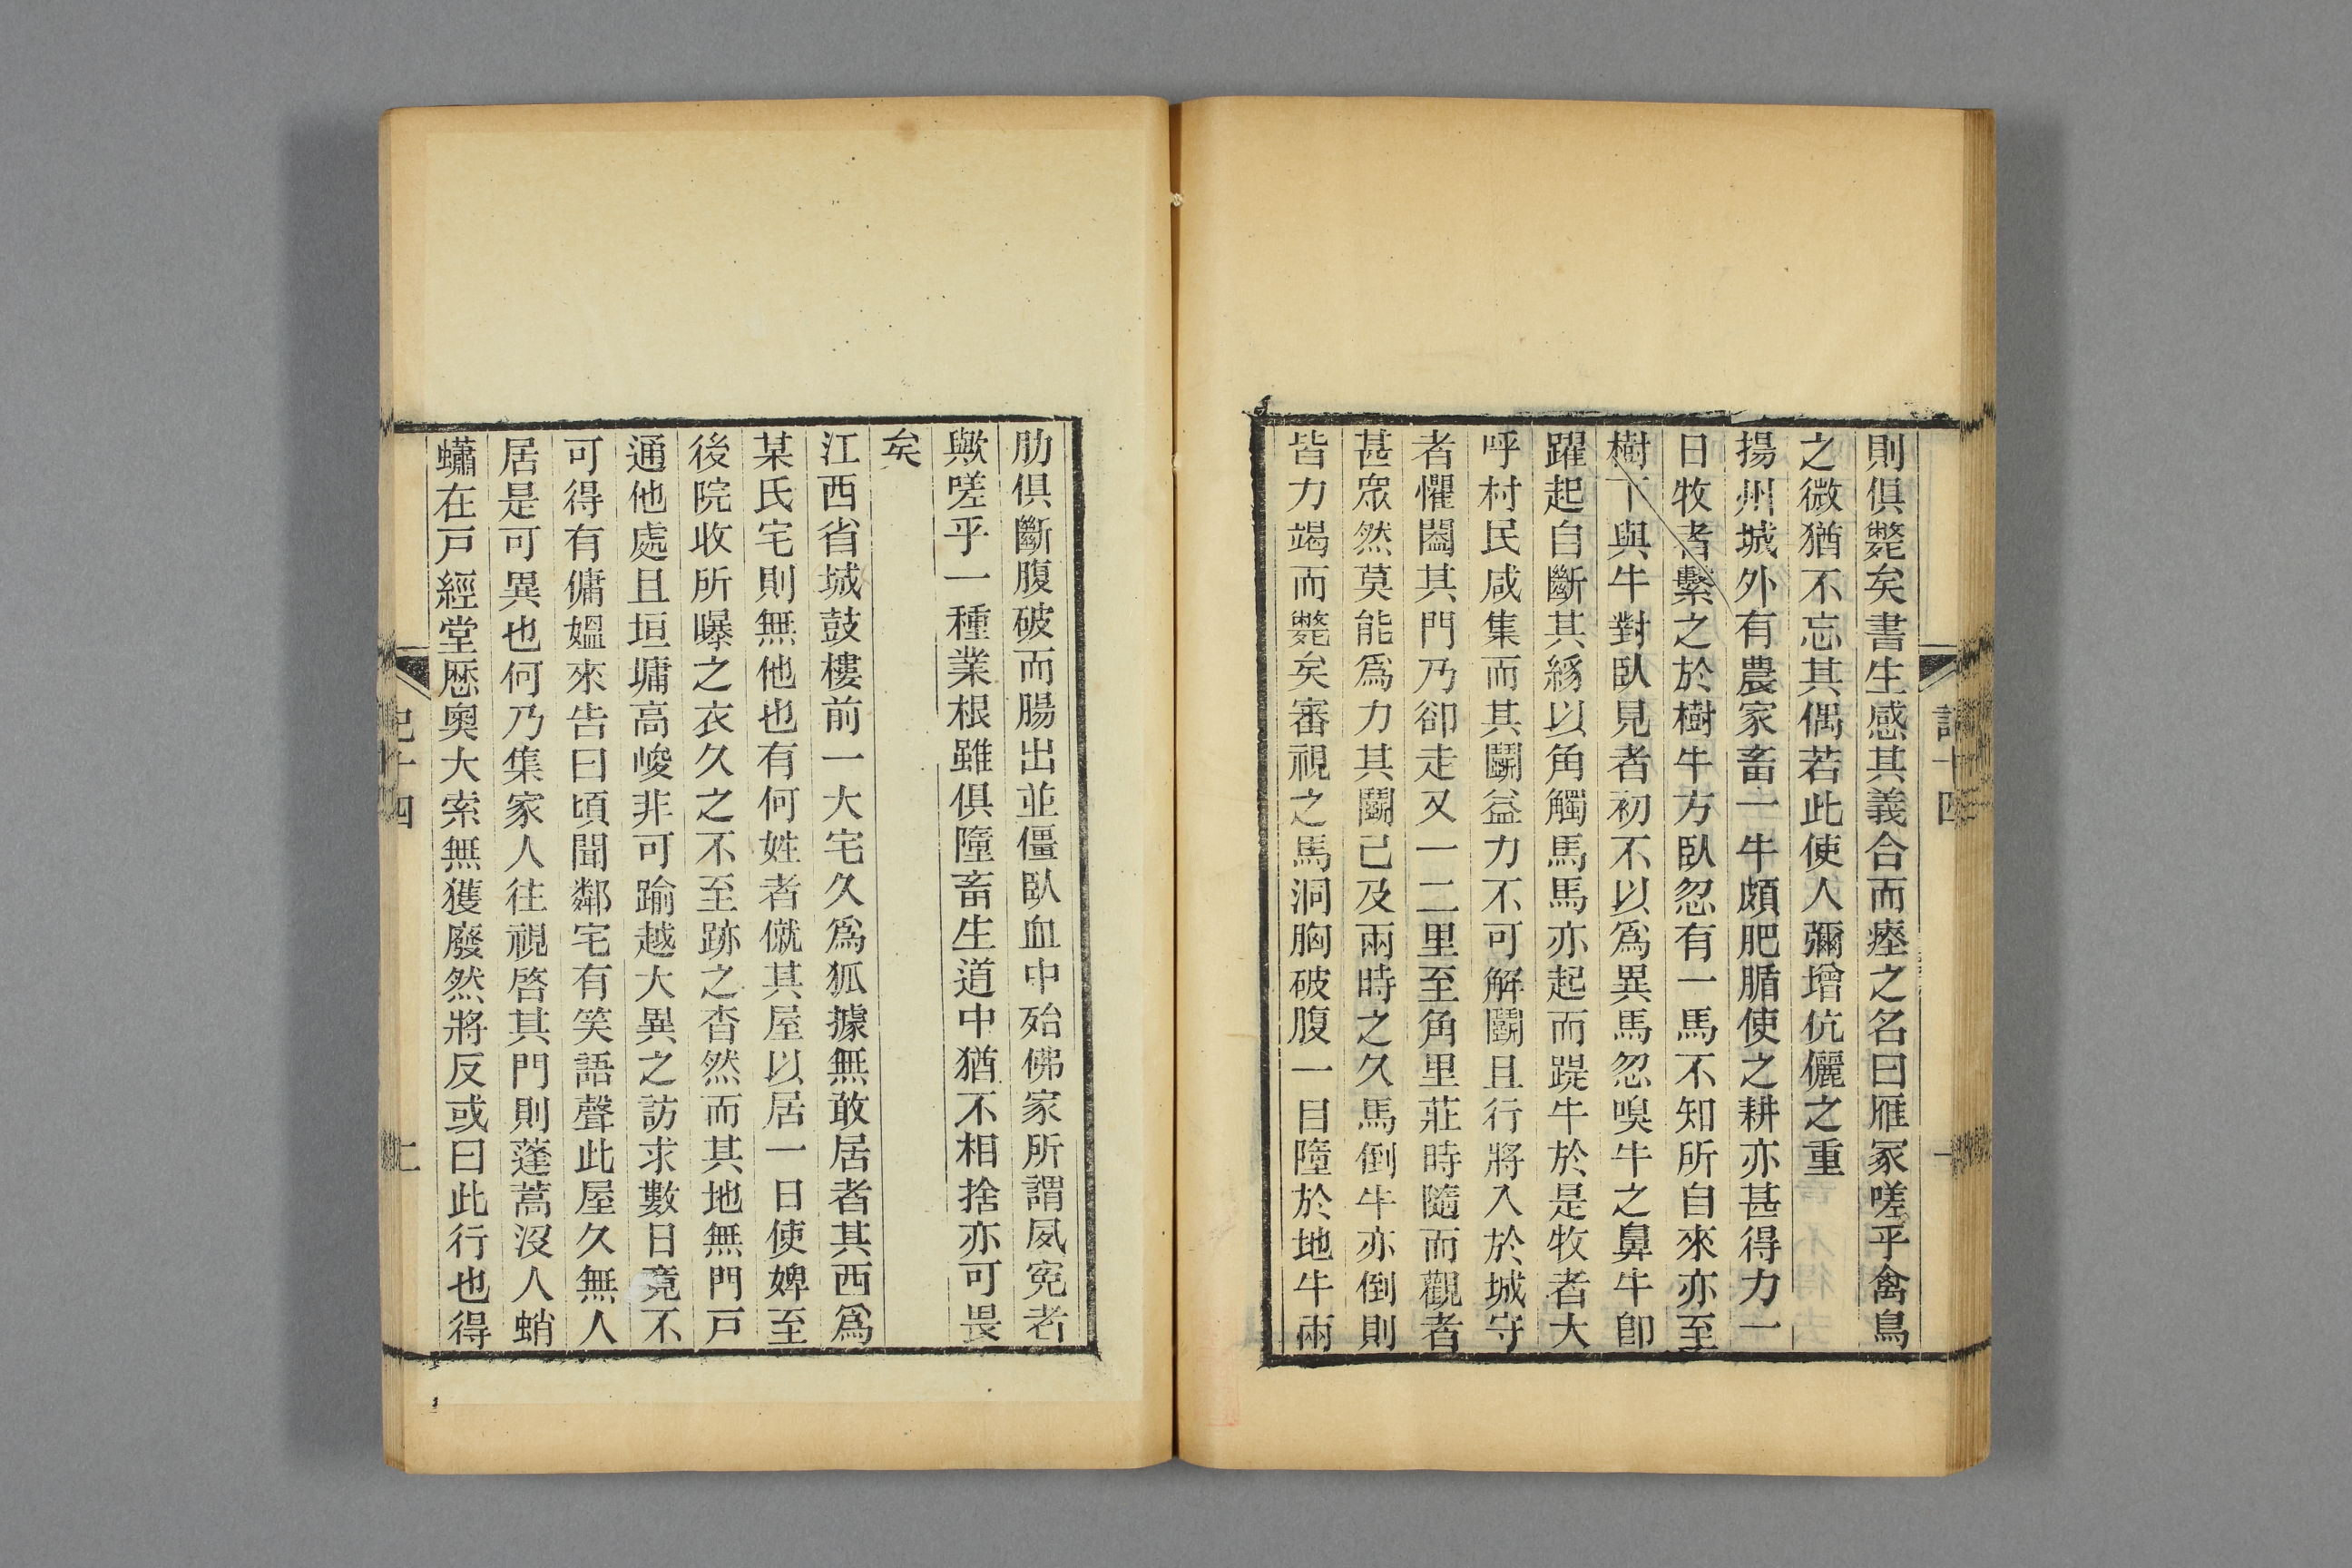 則俱斃矣書生感其義合而瘞之名曰雁冢嗟乎禽鳥
之微猶不忘其偶若此使人彌增伉儷之重
揚州城外有農家畜一牛頗肥腯使之耕亦甚得力一
日牧者繫之於樹牛方臥忽有一馬不知所自來亦至
樹下與牛對臥見者初不以爲異馬忽嗅牛之鼻牛卽
躍起自斷其縁以角觸馬馬亦起而踶牛於是牧者大
呼村民咸集而其鬬益力不可解鬬且行將入於城守
者懼闔其門乃卻走又一二里至角里莊時隨而觀者
甚眾然莫能爲力其鬬已及兩時之久馬倒牛亦倒則
皆力竭而斃矣審視之馬洞胸破腹一目墮於地牛兩
肋俱斷腹破而腸出並僵臥血中殆佛家所謂夙冤者
歟嗟乎一種業根雖俱墮畜生道中猶不相捨亦可畏
矣
江西省城鼓樓前一大宅久爲狐據無敢居者其西爲
某氏宅則無他也有何姓者僦其屋以居一日使婢至
後院收所曝之衣久之不至跡之杳然而其地無門戶
通他處且垣墉高峻非可踰越大異之訪求數日竟不
可得有傭媼來告曰頃聞鄰宅有笑語聲此屋久無人
居是可異也何乃集家人往視啓其門則蓬蒿沒人蛸
蠨在戸經堂歷奧大索無獲廢然將反或曰此行也得